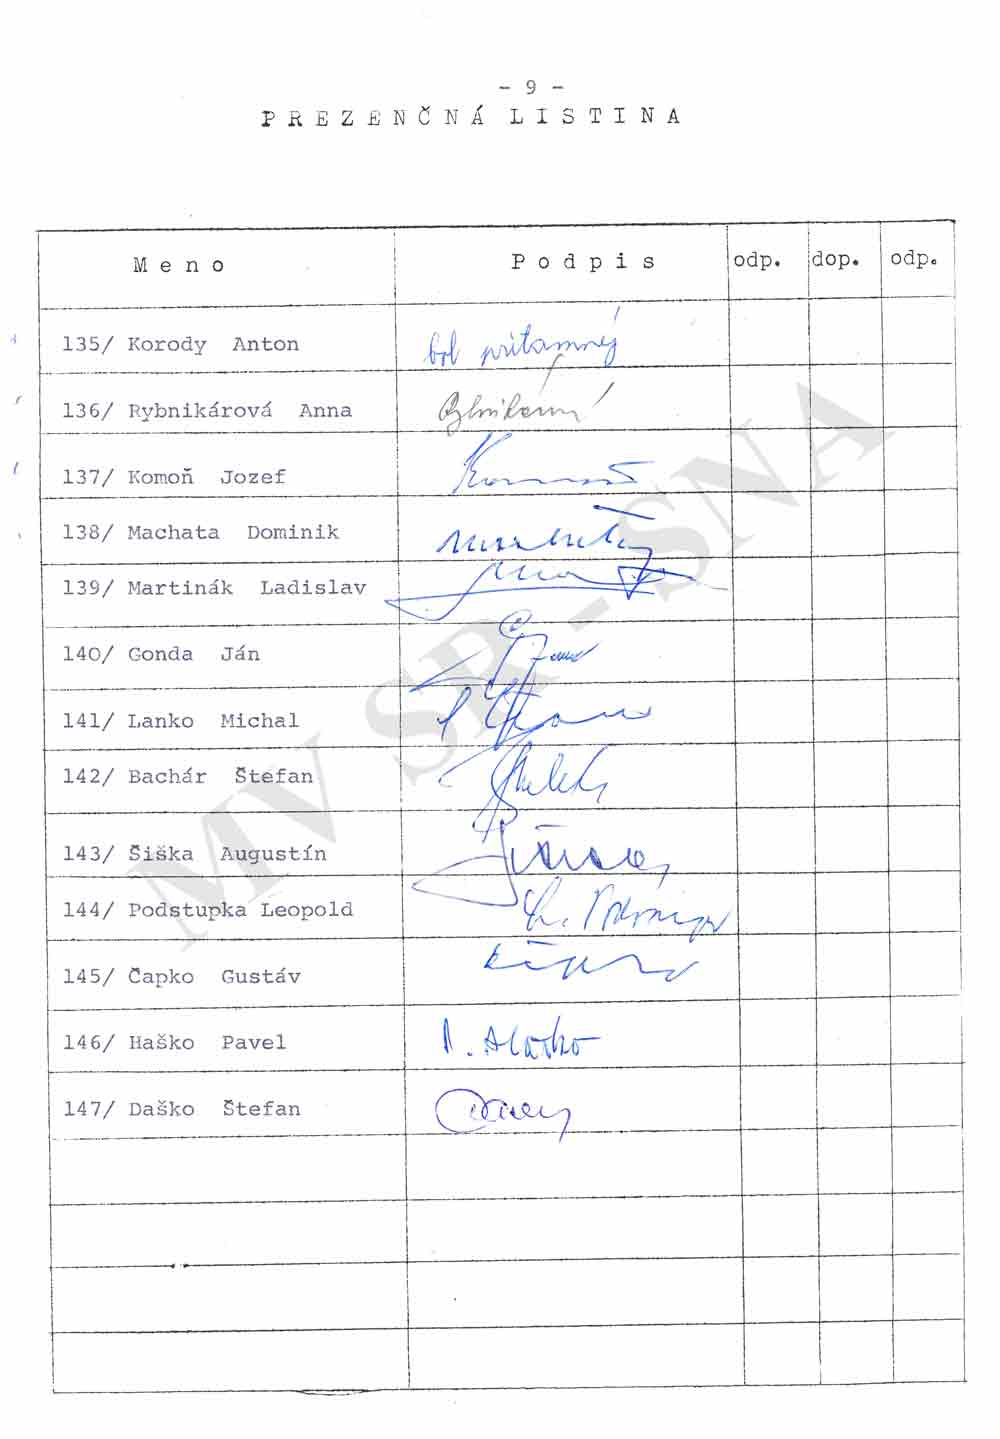 - 9 -
PREZENČNÁ LISTINA
Meno Podpis odp. dop. odp.
135/ Korody Anton bol prítomný
136/ Rybnikárová Anna Rybnikárová
137/ Komoň Jozef
138/ Machata Dominik
139/ Martinák Ladislav
140/ Gonda Ján
141/ Lanko Michal
142/ Bachár Štefan
143/ Šiška Augustín
144/ Podstupka Leopold
145/ Čapko Gustáv
146/ Haško Pavel P. Haško
147/ Daško Štefan
MV SR - SNA